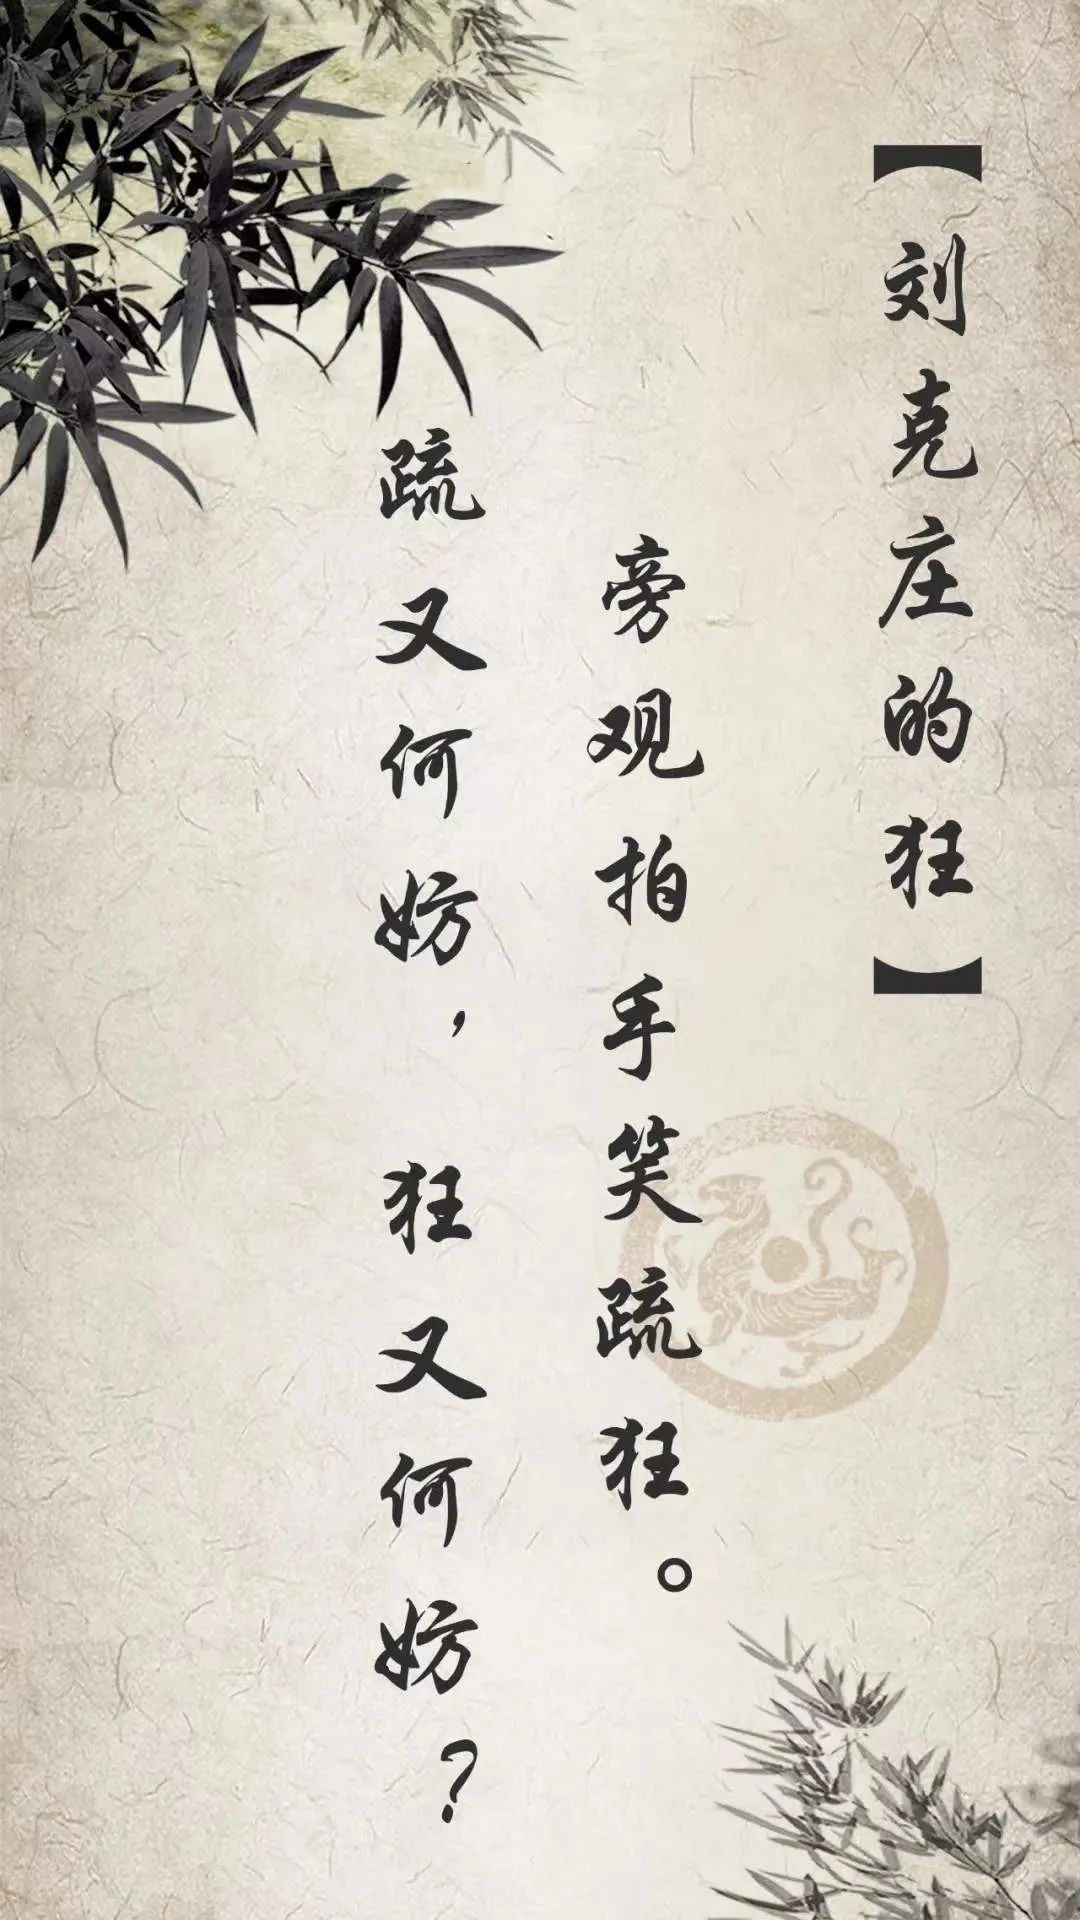 【刘克庄的狂】
旁观拍手笑疏狂。
疏又何妨，狂又何妨？